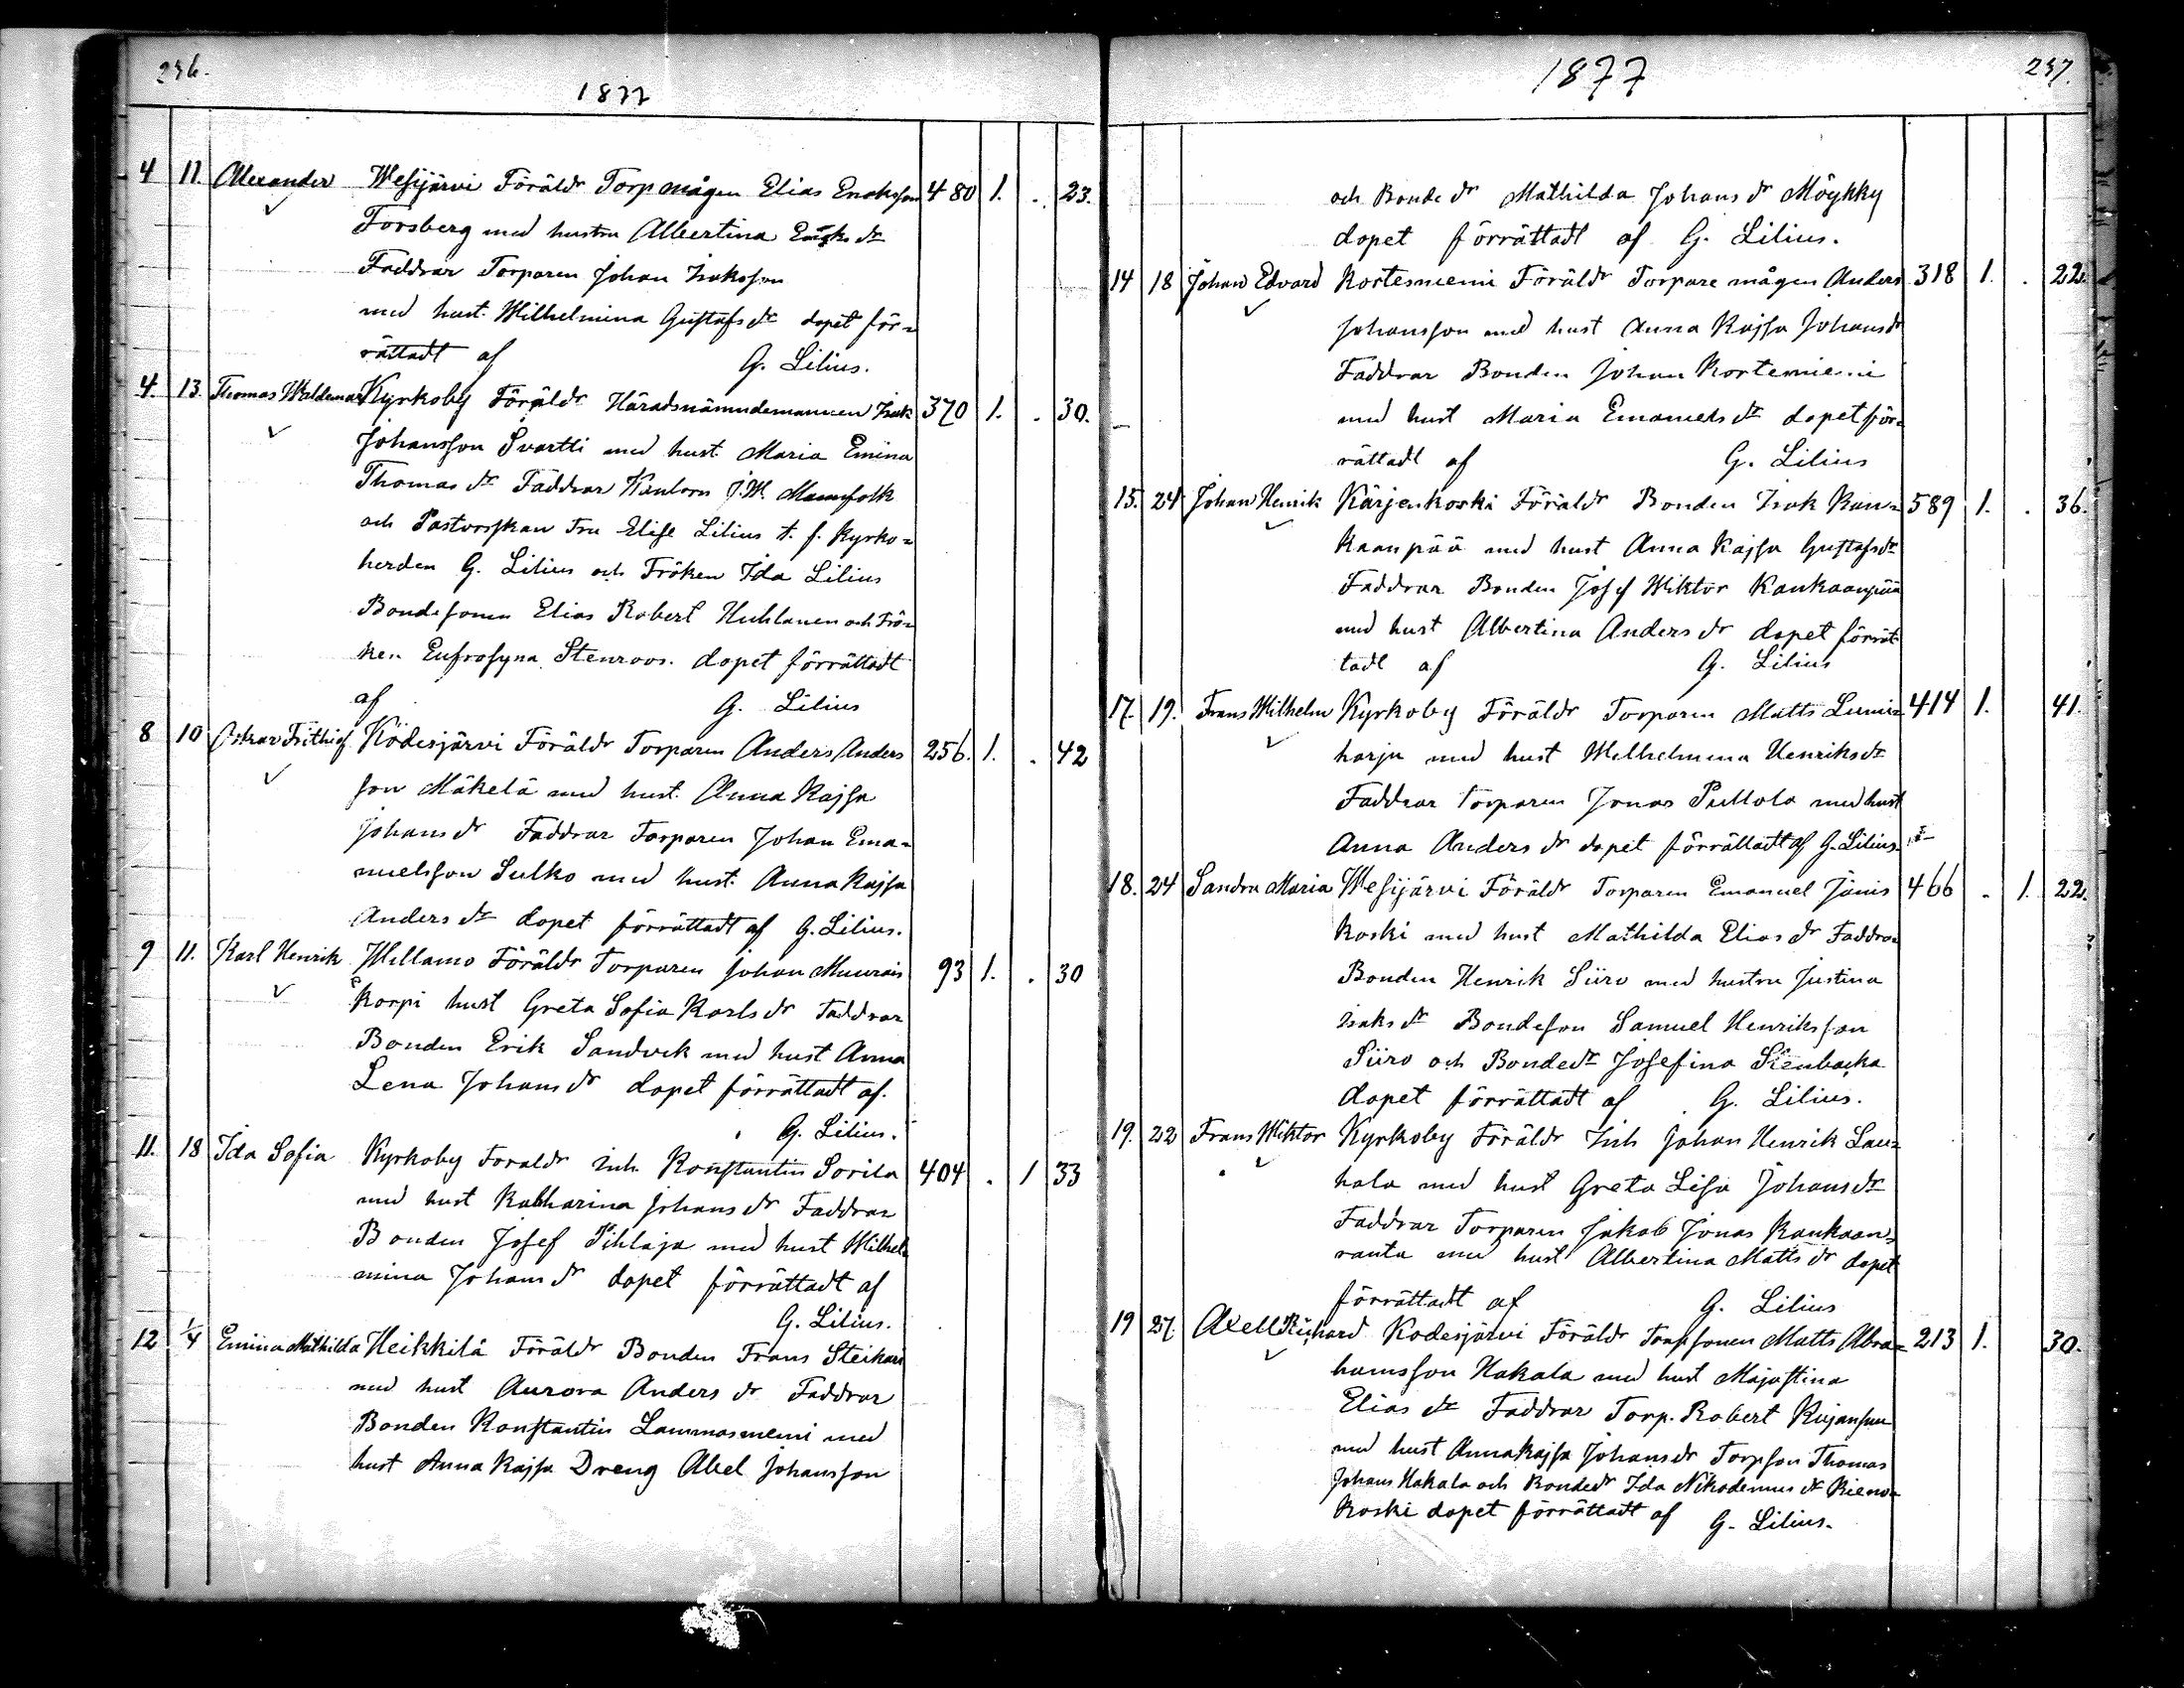 236.
1877
4 11. Alexander Wesijärvi Föräldr Torpmågen Elias Enoksson 480 1. . 23.
Forsberg med hustru Albertina Enoks dr
Faddrar Torparen Johan Isaksson
med hust. Wilhelmina Gustafs dr dopet för=
rättadt af G. Lilius.
4. 13. Thomas Waldemar Kyrkoby Föräldr Häradsnämndemannen Isak 370 1. . 30.
Johansson Svartti med hust. Maria Emina
Thomas dr Faddrar Kantorn J.W. Mannfolk
och Pastorskan Fru Elise Lilius t. f. Kyrko=
herden G. Lilius och Fröken Ida Lilius
Bondesonen Elias Robert Huhlanen och Frö=
ken Eufrosyna Stenroos. dopet förrättadt
af G. Lilius
8 10 Oskar Frithiof Ködesjärvi Föräldr Torparen Anders Anders 256. 1. . 42
son Mäkelä med hust. Anna Kajsa
Johans dr Faddrar Torparen Johan Ema=
nuelsson Sulko med hust. Anna Kajsa
Anders dr dopet förrättadt af G. Lilius.
9 11. Karl Henrik Willamo Föräldr Torparen Johan Muurais 93 1. . 30
korpi hust Greta Sofia Karls dr Faddrar
Bonden Erik Sandvik med hust Anna
Lena Johans dr dopet förrättadt af.
G. Lilius.
11. 18 Ida Sofia Kyrkoby Föraldr Inh. Konstantin Sorila 404 . 1 33
med hust Katharina Johans dr Faddrar
Bonden Josef Pihlaja med hust Wilhel=
mina Johans dr dopet förrättadt af
G. Lilius.
12 1/4 Emiina Mathilda Heikkilä Föräldr Bonden Frans Steikari
med hust Aurora Anders dr Faddrar
Bonden Konstantin Lammasniemi med
hust Anna Kajsa Dreng Abel Johansson
1877
237.
och Bonde dr Mathilda Johans dr Möykky
dopet förrättadt af G. Lilius.
14 18 Johan Edvard Kortesniemi Föräldr Torpare mågen Anders 318 1. . 22.
Johansson med hust Anna Kajsa Johans dr
Faddrar Bonden Johan Kortesniemi
med hust Maria Emanuels dr dopet för=
rättadt af G. Lilius
15. 24 Johan Henrik Kärjenkoski Föräldr Bonden Isak Kan= 589 1. . 36.
kaanpää med hust Anna Kajsa Gustafs dr
Faddrar Bonden Josef Wiktor Kankaanpää
med hust Albertina Anders dr dopet förrät
tadt af G. Lilius
17. 19. Frans Wilhelm Kyrkoby Föräldr Torparen Matts Lumi= 414 1. 41.
harju med hust Wilhelmina Henriks dr
Faddrar Torparen Jonas Pullola med hust
Anna Anders dr dopet förrättadt af G. Lilius.
18. 24 Sandra Maria Wesijärvi Föräldr Torparen Emanuel Jänis 466 . 1. 22.
koski med hust Mathilda Elias dr Faddra=
Bonden Henrik Siiro med hustru Justina
Isaks dr Bondeson Samuel Henriksson
Siiro och Bonde dr Josefina Stenbacka
dopet förrättadt af G. Lilius.
19. 22 Frans Wiktor Kyrkoby Föräldr Inh Johan Henrik Lau=
hala med hust Greta Lisa Johans dr
Faddrar Torparen Jakob Jonas Kankaan=
ranta med hust Albertina Matts dr dopet
förrättadt af G. Lilius
19 27. Axell Richard Kodesjärvi Föräldr Torpsonen Matts Abra= 213 1. 30.
hamsson Hakala med hust Majastina
Elias dr Faddrar Torp. Robert Kujansuu
med hust Anna Kajsa Johans dr Torpson Thomas
Johans Hakala och Bonde dr Ida Nikodemus dr
koski dopet förrättadt af G. Lilius.